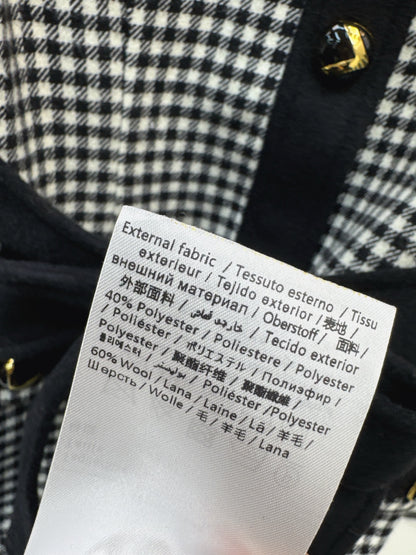 External fabric / Tessuto esterno / Tissu
extérieur / Tejido exterior / 表地 /
внешний материал / Oberstoff / 面料 /
外部面料 / قماش خارجي / Tecido exterior
40% Polyester / Poliestere / Polyester
/ Poliéster / ポリエステル / Полиэфир /
Polyester / 聚酯纤维 / 聚酯纖維 /
폴리에스터 / بوليستر / Poliéster / Polyester
60% Wool / Lana / Laine / Lã / 羊毛 /
Шерсть / Wolle / 毛 / 羊毛 / Lana